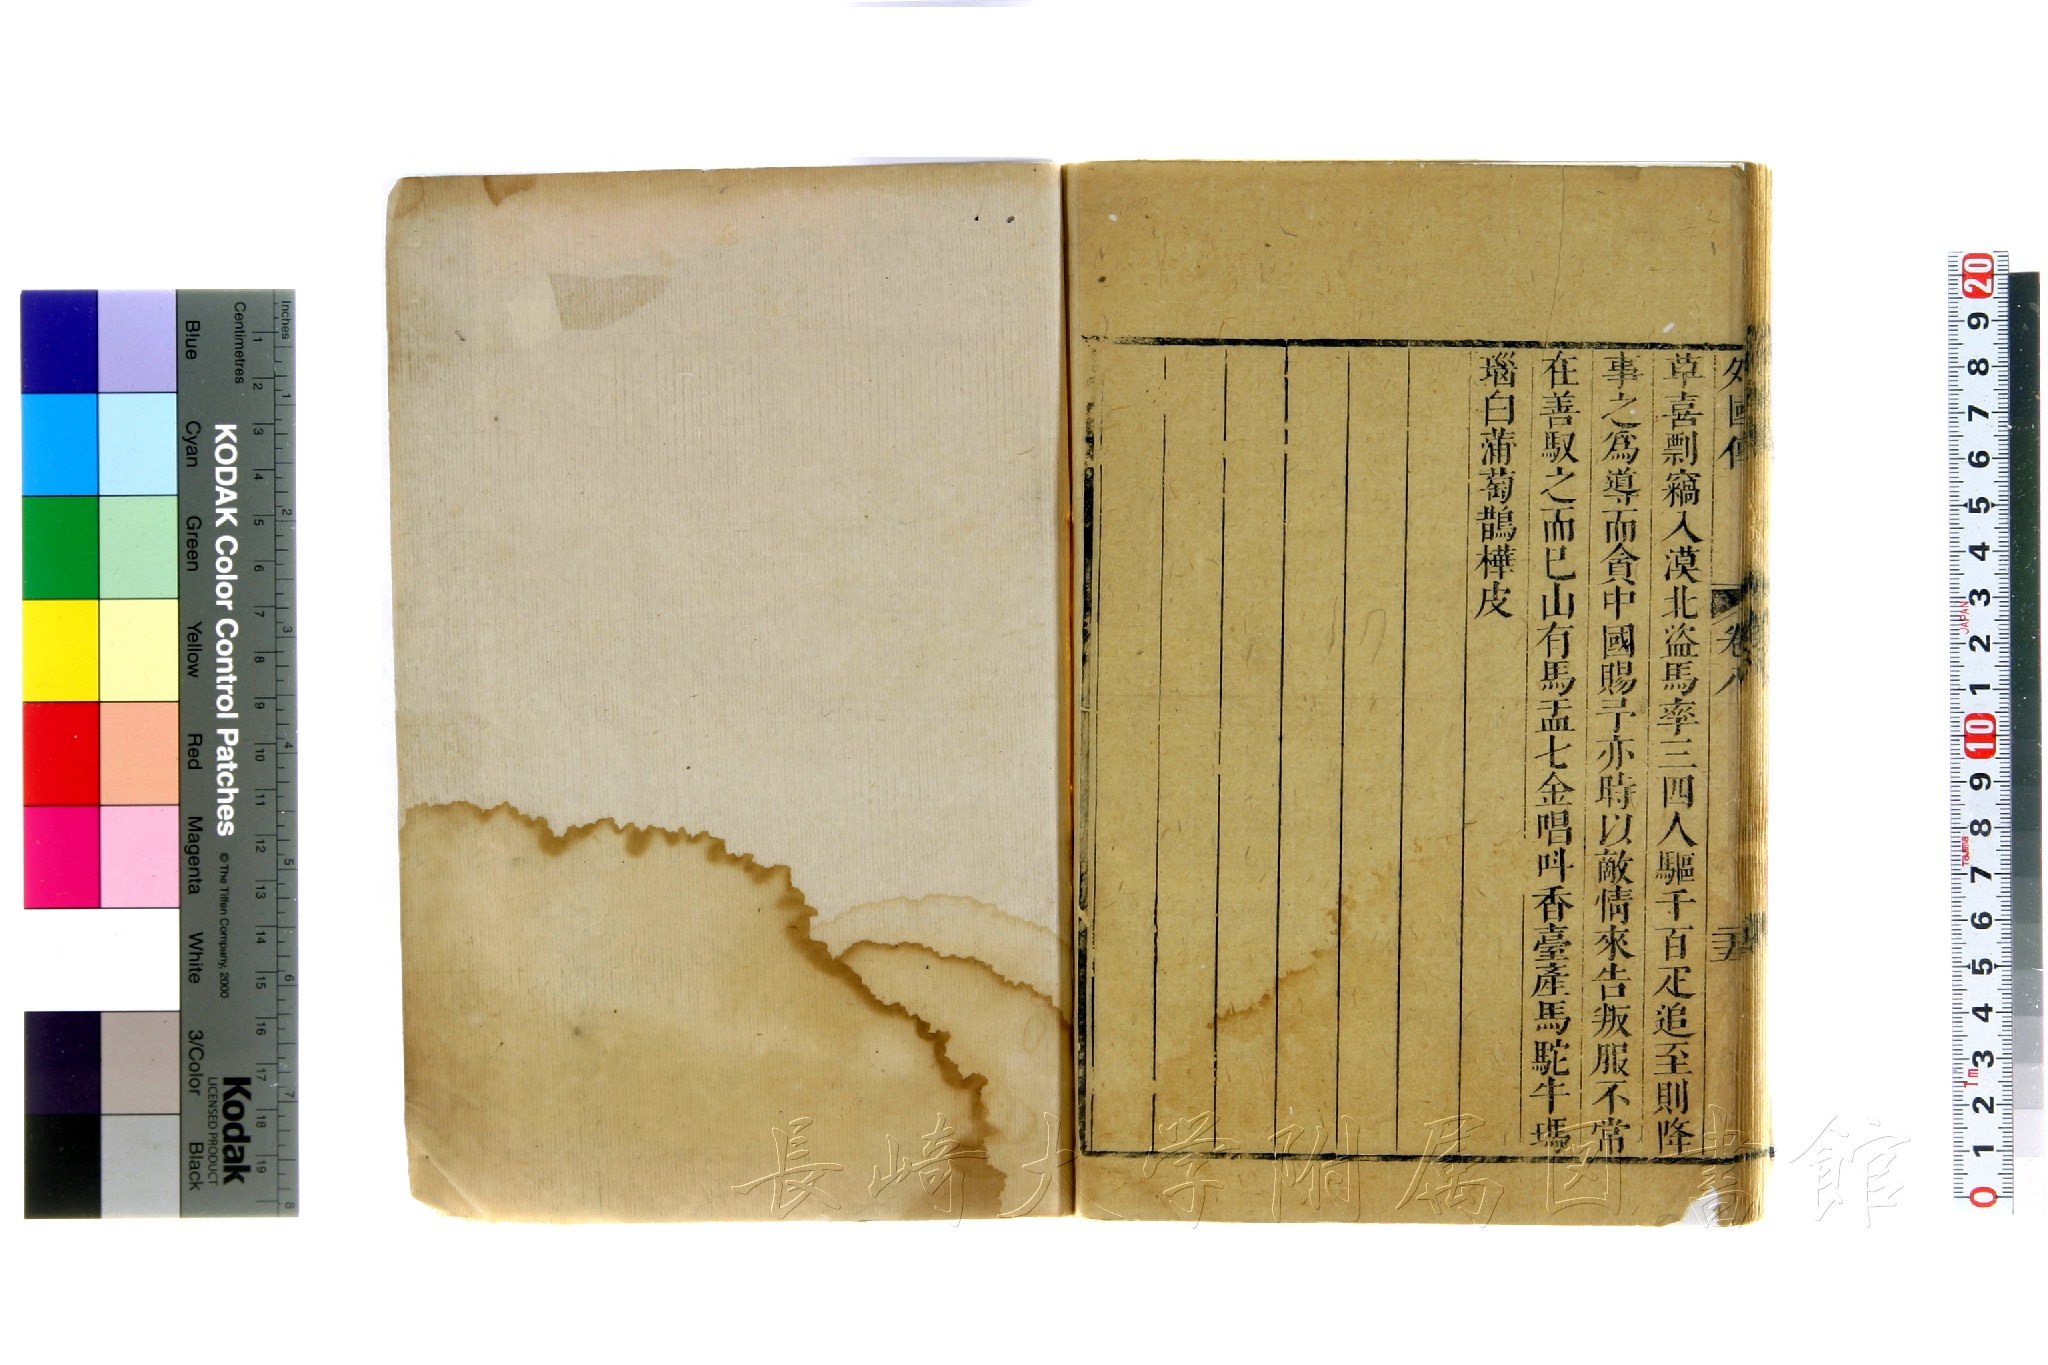 外國傳 卷八
草喜剽竊入漠北盜馬率三四人驅千百疋追至則降
事之為導而貪中國賜予亦時以敵情來告叛服不常
在善馭之而已山有馬盂七金唱呌香臺產馬駝牛瑪
瑙白蒲萄鵲樺皮
長崎大学附属図書館
KODAK Color Control Patches
© The Tiffen Company, 2000
Kodak
LICENSED PRODUCT
Inches
Centimetres
Blue
Cyan
Green
Yellow
Red
Magenta
White
3/Color
Black
1 2 3 4 5 6 7 8 9 10 11 12 13 14 15 16 17 18 19
1 2 3 4 5 6 7 8
20 9 8 7 6 5 4 3 2 1 10 9 8 7 6 5 4 3 2 1 0
JAPAN